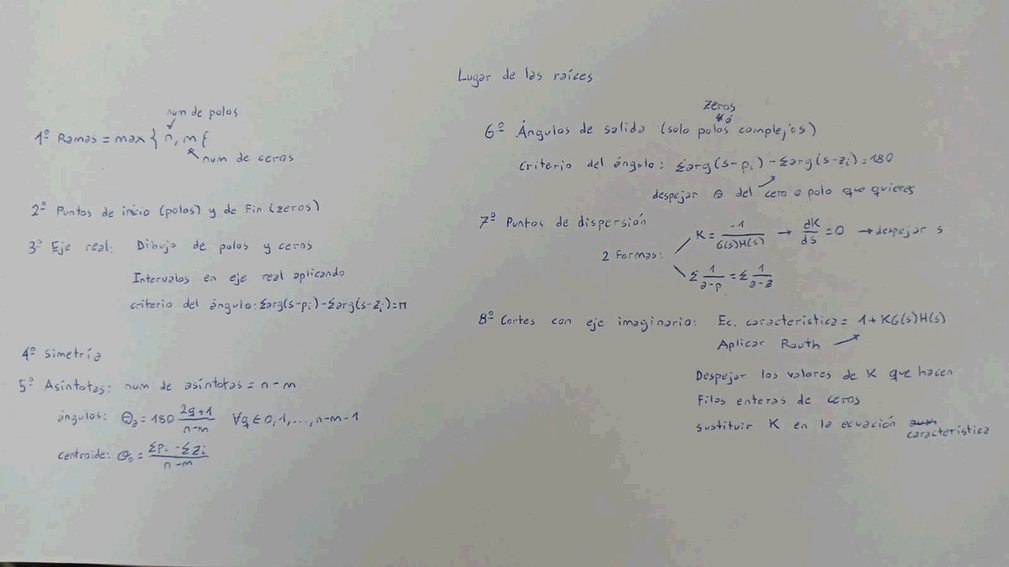 Lugar de las raíces
num de polos
1º Ramas = max { n, m {
num de ceros
2º Puntos de inicio (polos) y de Fin (zeros)
3º Eje real: Dibujo de polos y ceros
Intervalos en eje real aplicando
criterio del ángulo: Σarg(s-pi) - Σarg(s-zi) = π
4º simetría
5º Asíntotas: num de asíntotas = n-m
ángulos: Θa = 180 (2q+1)/(n-m) ∀q ∈ 0, 1, ..., n-m-1
centroide: σo = (Σpi - Σzi)/(n-m)
zeros
6º Ángulos de salida (solo polos complejos)
criterio del ángulo: Σarg(s-pi) - Σarg(s-zi) = 180
despejar Θ del cero o polo que quieres
7º Puntos de dispersión
2 Formas:
K = -1/(G(s)H(s)) → dK/ds = 0 → despejar s
Σ 1/(σ-p) = Σ 1/(σ-z)
8º Cortes con eje imaginario: Ec. característica = 1+KG(s)H(s)
Aplicar Routh
Despejar los valores de K que hacen
Filas enteras de ceros
sustituir K en la ecuación
característica